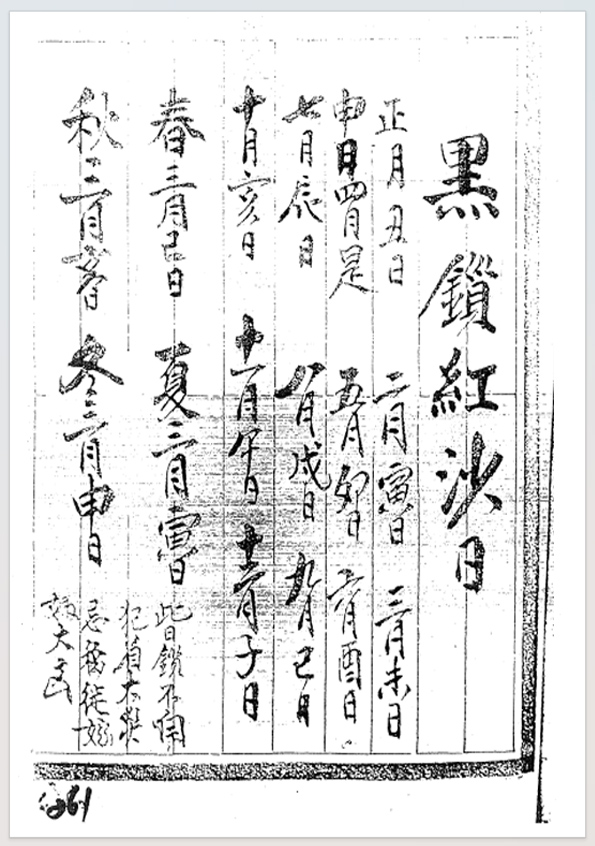 黑鎖紅沙日
正月丑日 二月寅日 三月未日
申日四月是 五月卯日 六月酉日
七月辰日 八月戍日 九月巳日
十月亥日 十一月午日 十二月子日
春三月巳日 夏三月寅日 此日鎖不開
犯有大
秋三月 冬三月申日 忌 徙嫁
大凶
61